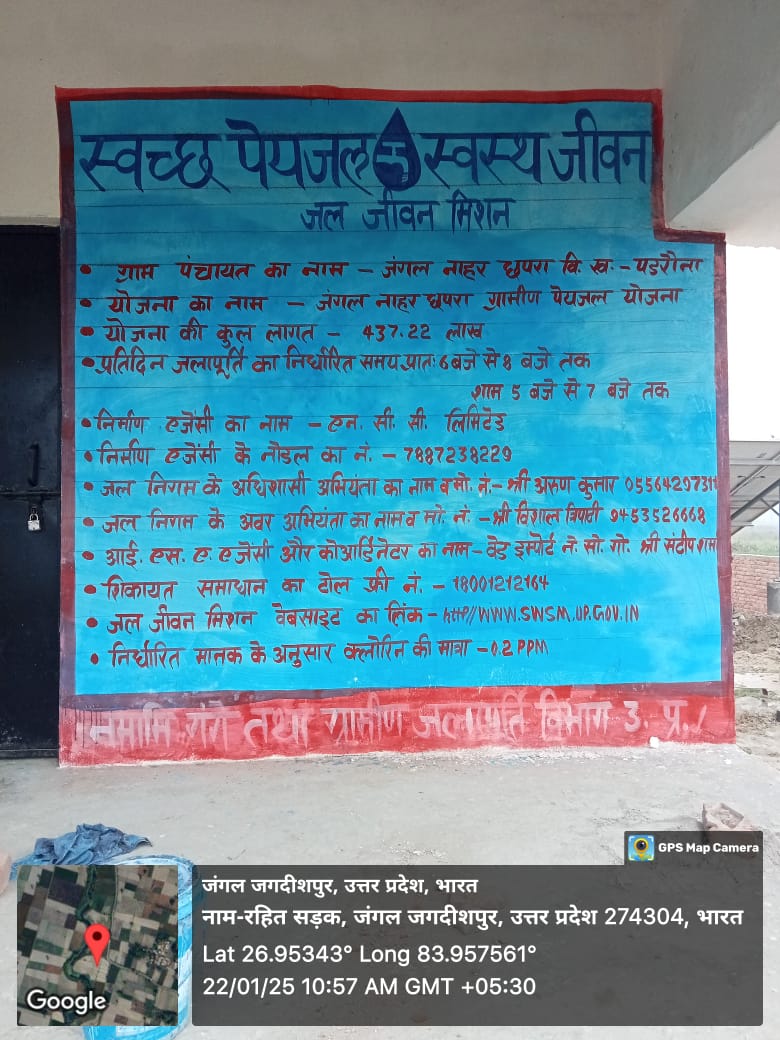 स्वच्छ पेयजल स्वस्थ जीवन
जल जीवन मिशन
• ग्राम पंचायत का नाम – जंगल नाहर छपरा वि. ख. - पडरौना
• योजना का नाम – जंगल नाहर छपरा ग्रामीण पेयजल योजना
• योजना की कुल लागत – 437.22 लाख
• प्रतिदिन जलापूर्ति का निर्धारित समय प्रातः 6 बजे से 8 बजे तक
शाम 5 बजे से 7 बजे तक
• निर्माण एजेंसी का नाम – एन. सी. सी. लिमिटेड
• निर्माण एजेंसी के नोडल का नं. – 7887238229
• जल निगम के अधिशासी अभियंता का नाम व मो. नं.- श्री अरुण कुमार
• जल निगम के अवर अभियंता का नाम व मो. नं. - श्री विशाल त्रिपाठी 9453526668
• आई. एस. ए. एजेंसी और कोआर्डिनेटर का नाम - वेड इम्पोर्ट ने. सो. गो. श्री संदीप शर्मा
• शिकायत समाधान का टोल फ्री नं. – 18001212164
• जल जीवन मिशन वेबसाइट का लिंक – http//WWW.SWSM.UP.GOV.IN
• निर्धारित मानक के अनुसार क्लोरिन की मात्रा – 0.2 PPM
नमामि गंगे तथा ग्रामीण जलापूर्ति विभाग उ. प्र.
GPS Map Camera
जंगल जगदीशपुर, उत्तर प्रदेश, भारत
नाम-रहित सड़क, जंगल जगदीशपुर, उत्तर प्रदेश 274304, भारत
Lat 26.95343° Long 83.957561°
22/01/25 10:57 AM GMT +05:30
Google